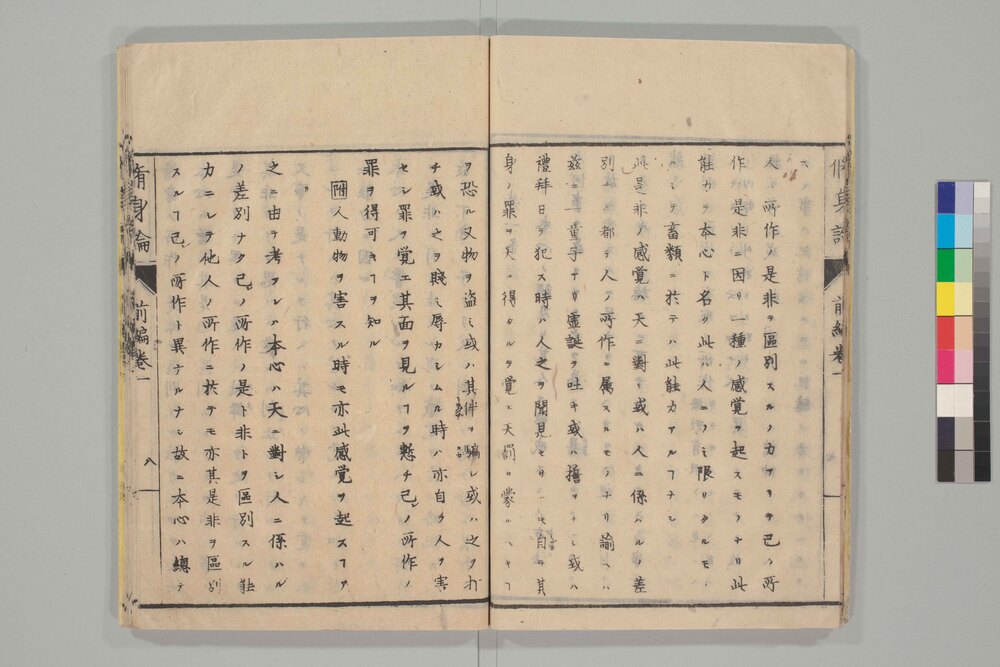 人ノ所作ノ是非ヲ區別スルノ力アリテ己ノ所
作ノ是非ニ因リ一種ノ感覚ヲ起スモノナリ此
能力ヲ本心ト名ク此ハ人ニノミ限リタルモノ
ニシテ畜類ニ於テハ此能力アルヿナシ
此是非ノ感覚ハ天ニ對シ或ハ人ニ係ハルノ差
別アレ𪜈都テ人ノ所作ニ属スルモノナリ諭ヘハ
茲ニ一童子アリ虚誕ヲ吐キ或ハ
禮拜日ヲ犯ス時ハ人之ヲ聞見セサレ𪜈自ラ其
身ノ罪ヲ天ニ得タルヲ覚エ天罰ヲ蒙ルヘキヿ
ヲ恐ル又物ヲ盗ミ或ハ其伴ヲ騙シ或ハ之ヲ打
チ或ハ之ヲ賤ミ辱カシムル時ハ亦自ラ人ヲ害
セシ罪ヲ覚エ其面ヲ見ルヿヲ慙チ己ノ所作ノ
罪ヲ得可キヿヲ知ル
問人動物ヲ害スル時モ亦此感覚ヲ起スヿア
リ
之ニ由テ考フレハ本心ハ天ニ對シ人ニ係ハル
ノ差別ナク己ノ所作ノ是ト非トヲ區別スル能
力ニシテ他人ノ所作ニ於テモ亦其是非ヲ區別
スルヿ己ノ所作ト異ナルナシ故ニ本心ハ總テ
脩身論 前編巻一 八